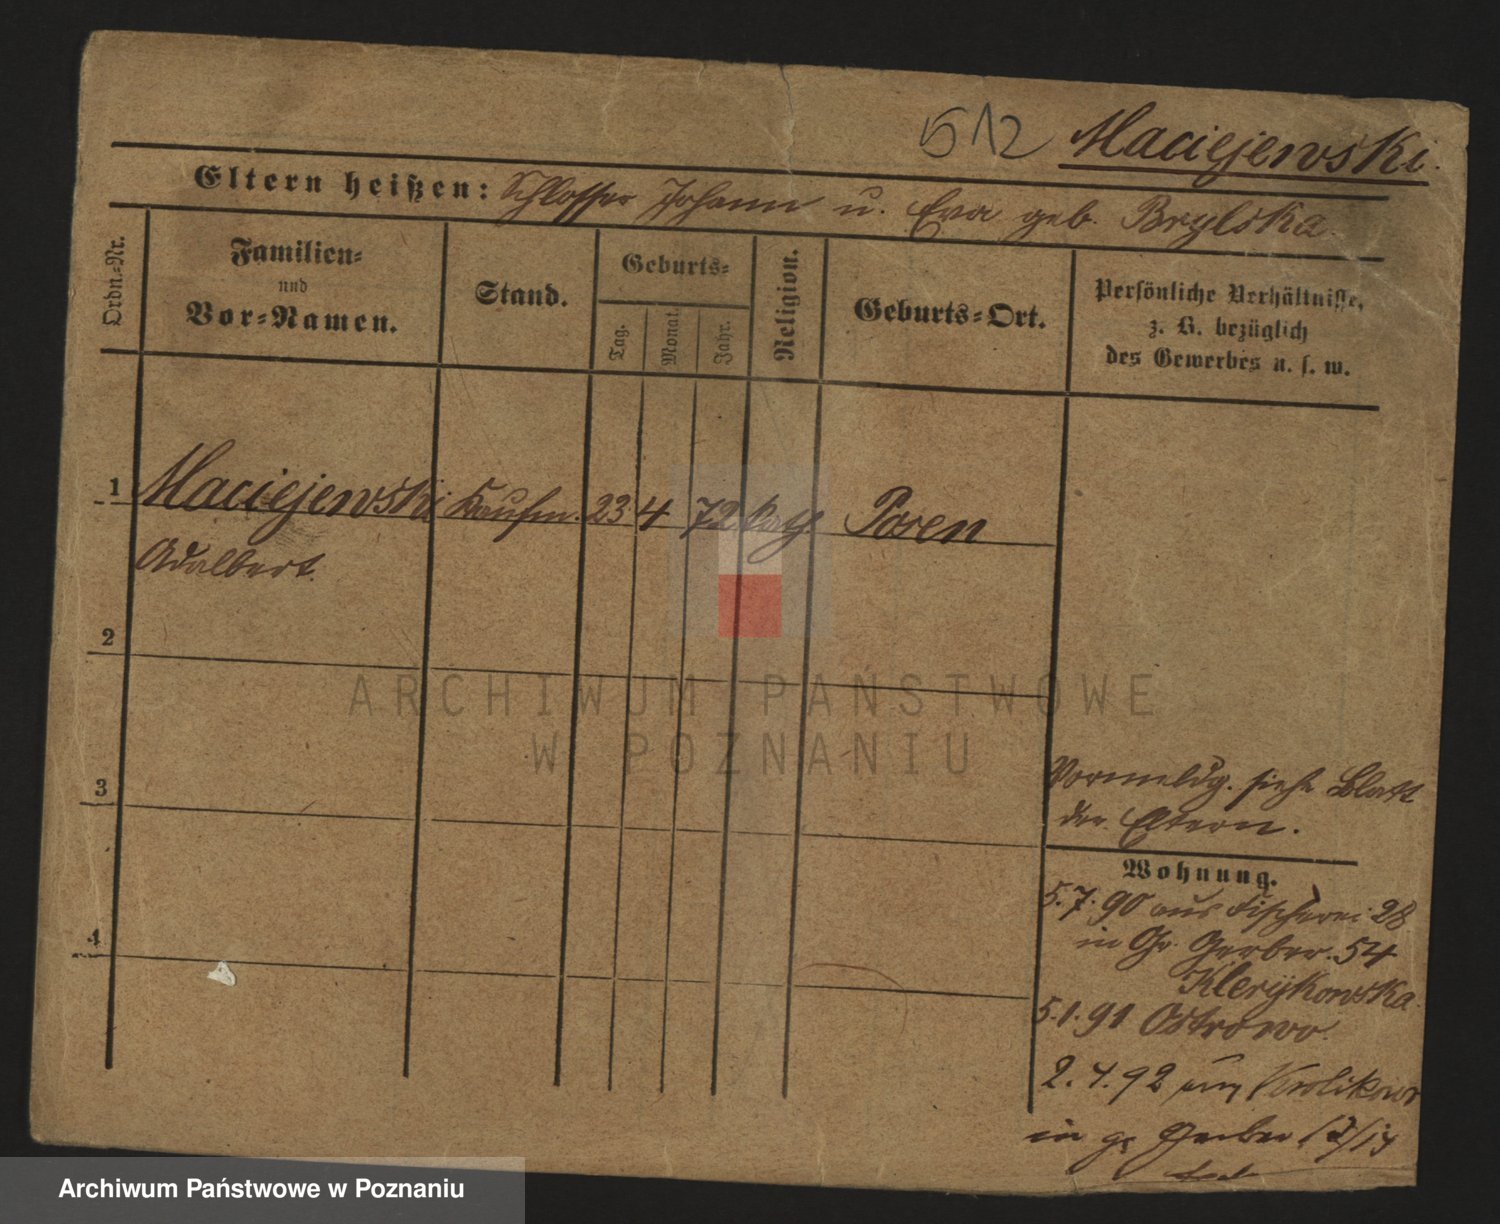 512 Maciejewski.
Eltern heißen: Schlosser Johann u. Eva geb. Brylska.
Ordn.-Nr.
Familien-
und
Vor-Namen.
Stand.
Geburts-
Tag.
Monat.
Jahr.
Religion.
Geburts-Ort.
Persönliche Verhältnisse,
z. B. bezüglich
des Gewerbes u. s. w.
1 Maciejewski Kaufm. 23 4 72 kath Posen
Adalbert.
2
3
4
Vormeldg. siehe Blatt
der Eltern.
Wohnung.
5.7.90 aus Fischerei 28
in Gr. Gerber. 54
Klerykowska.
5.1.91 Ostrowo.
2.4.92 aus
in gr Gerber
ARCHIWUM PAŃSTWOWE
W POZNANIU
Archiwum Państwowe w Poznaniu